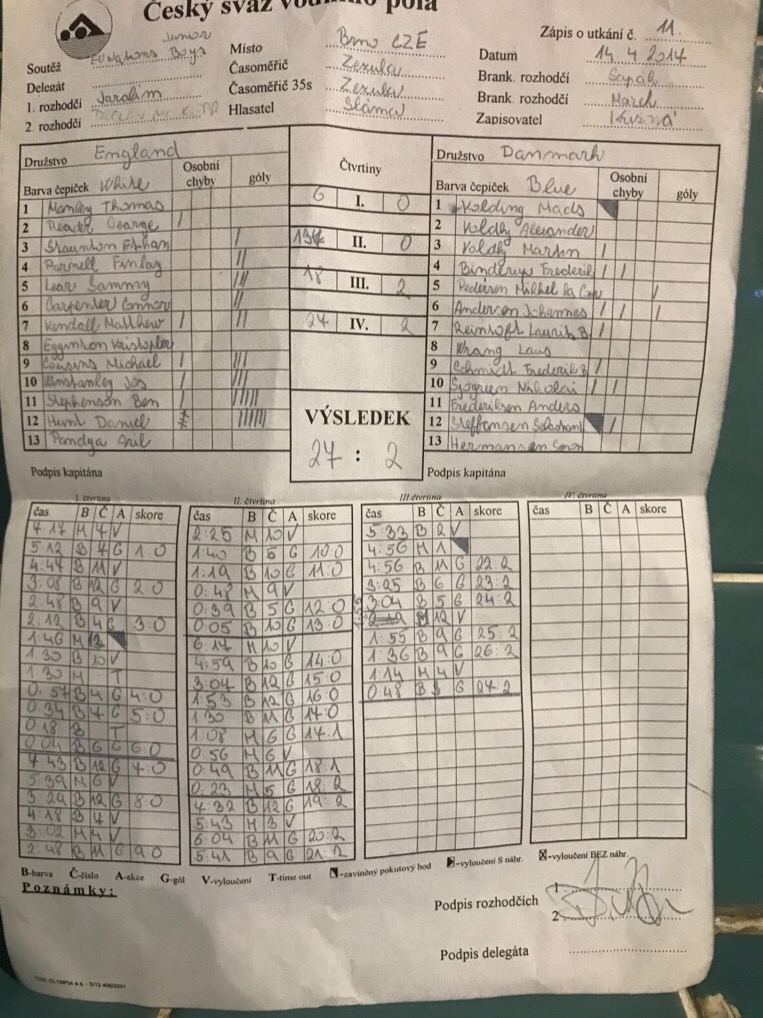 Český svaz vodního póla
Zápis o utkání č. 11.
Junior
Soutěž EU Nations Boys
Místo Brno CZE
Datum 14.4.2017
Delegát
Časoměřič Zezula
Brank. rozhodčí
1. rozhodčí Jarolim
Časoměřič 35s Zezula
Brank. rozhodčí March
2. rozhodčí
Hlasatel Sláma
Zapisovatel
Družstvo England
Čtvrtiny
Družstvo Danmark
Barva čepiček White Osobní chyby góly
6 I. 0
Barva čepiček Blue Osobní chyby góly
1 Manley Thomas
1 Kolding Mads
2 Reader George /
2 Voldby Alexander
II. 0
3 Staunton Ethan /
3 Voldby Martin /
4 Parnell Finlay //
4 Binderup Frederik / /
18 III. 2
5 Lear Sammy //
5 Pedersen Mikkel la Cour /
6 Carpenter Connor //
6 Andersen Johannes / / /
27 IV. 2
7 Kendall Matthew / //
7 Reintoft Laurits B. /
8 Egginton Kristopher
8 Wrang Laus
9 Cousins Michael / ///
9 Schmidt Frederik B /
10 Winstanley Jos / ///
10 Sjogreen Nikolai / /
11 Stephenson Ben / /////
11 Frederiksen Anders
VÝSLEDEK
12 Hunt Daniel
12 Steffansen
27 : 2
13 Pandya Anil
13 Hermansen
Podpis kapitána
Podpis kapitána
I. čtvrtina
II. čtvrtina
III. čtvrtina
IV. čtvrtina
čas B Č A skore
čas B Č A skore
čas B Č A skore
čas B Č A skore
7:17 M 7 V
2:25 M 10 V
5:33 B 2 V
5:12 B 7 G 1:0
1:40 B 5 G 10:0
4:56 M 1
4:47 B 11 V
1:19 B 10 G 11:0
4:56 B 11 G 22:2
3:08 B 12 G 2:0
0:48 M 9 V
3:25 B 6 G 23:2
2:48 B 9 V
0:39 B 5 G 12:0
3:04 B 5 G 24:2
2:12 B 4 G 3:0
0:05 B 10 G 13:0
B 12 V
1:46 M 12
6:17 M 10 V
1:55 B 9 G 25:2
1:30 B 10 V
4:59 B 10 G 14:0
1:36 B 9 G 26:2
1:30 M - T
3:04 B 12 G 15:0
1:14 M 4 V
0:57 B 4 G 4:0
1:53 B 12 G 16:0
0:48 B 3 G 27:2
0:34 B 7 G 5:0
1:30 B 11 G 17:0
0:18 B T
1:08 M 6 G 17:1
0:04 B 6 G 6:0
0:56 M 6 V
7:43 B 12 G 7:0
0:49 B 11 G 18:1
5:39 M 6 V
0:23 M 5 G 18:2
3:29 B 12 G 8:0
7:32 B 12 G 19:2
4:18 B 7 V
5:43 M 3 V
3:02 M 4 V
6:04 B 11 G 20:2
2:48 B 11 G 9:0
5:41 B 9 G 21:2
B-barva Č-číslo A-akce G-gól V-vyloučení T-time out -zaviněný pokutový hod -vyloučení S náhr. -vyloučení BEZ náhr.
Poznámky:
Podpis rozhodčích 1.
2.
Podpis delegáta